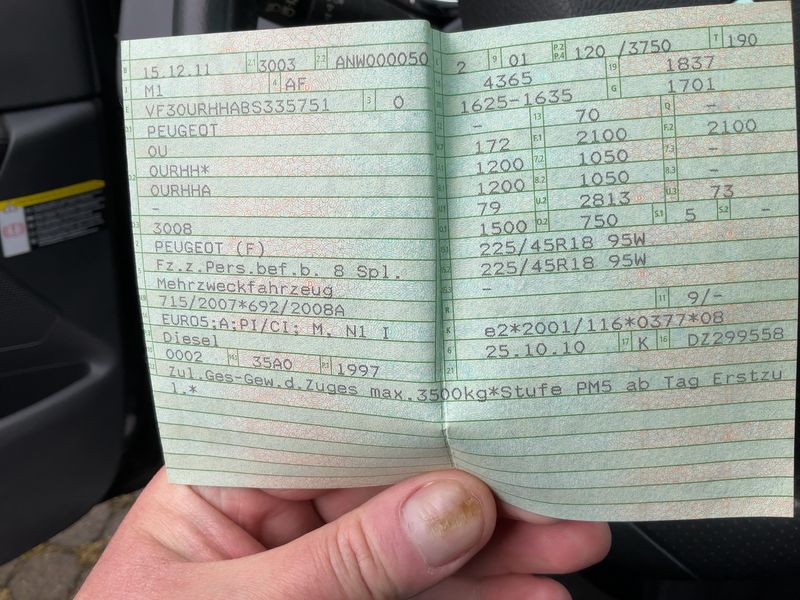 B 15.12.11 2.1 3003 2.2 ANW000050
J M1 4 AF
E VF30URHHABS335751 3 0
D.1 PEUGEOT
0U
D.2 0URHH*
0URHHA
-
D.3 3008
2 PEUGEOT (F)
5 Fz.z.Pers.bef.b. 8 Spl.
Mehrzweckfahrzeug
715/2007*692/2008A
EURO5;A;PI/CI; M, N1 I
Diesel
0002 14.1 35A0 P.1 1997
Zul.Ges-Gew.d.Zuges max.3500kg*Stufe PM5 ab Tag Erstzu
l.*
L 2 9 01 P.2 P.4 120 /3750 T 190
4365 19 1837
1625-1635 G 1701
- 13 70 Q -
V.7 172 F.1 2100 F.2 2100
7.1 1200 7.2 1050 7.3 -
8.1 1200 8.2 1050 8.3 -
U.1 79 U.2 2813 U.3 73
O.1 1500 O.2 750 S.1 5 S.2 -
15.1 225/45R18 95W
15.2 225/45R18 95W
15.3 -
R 11 9/-
K e2*2001/116*0377*08
6 25.10.10 17 K 16 DZ299558
21